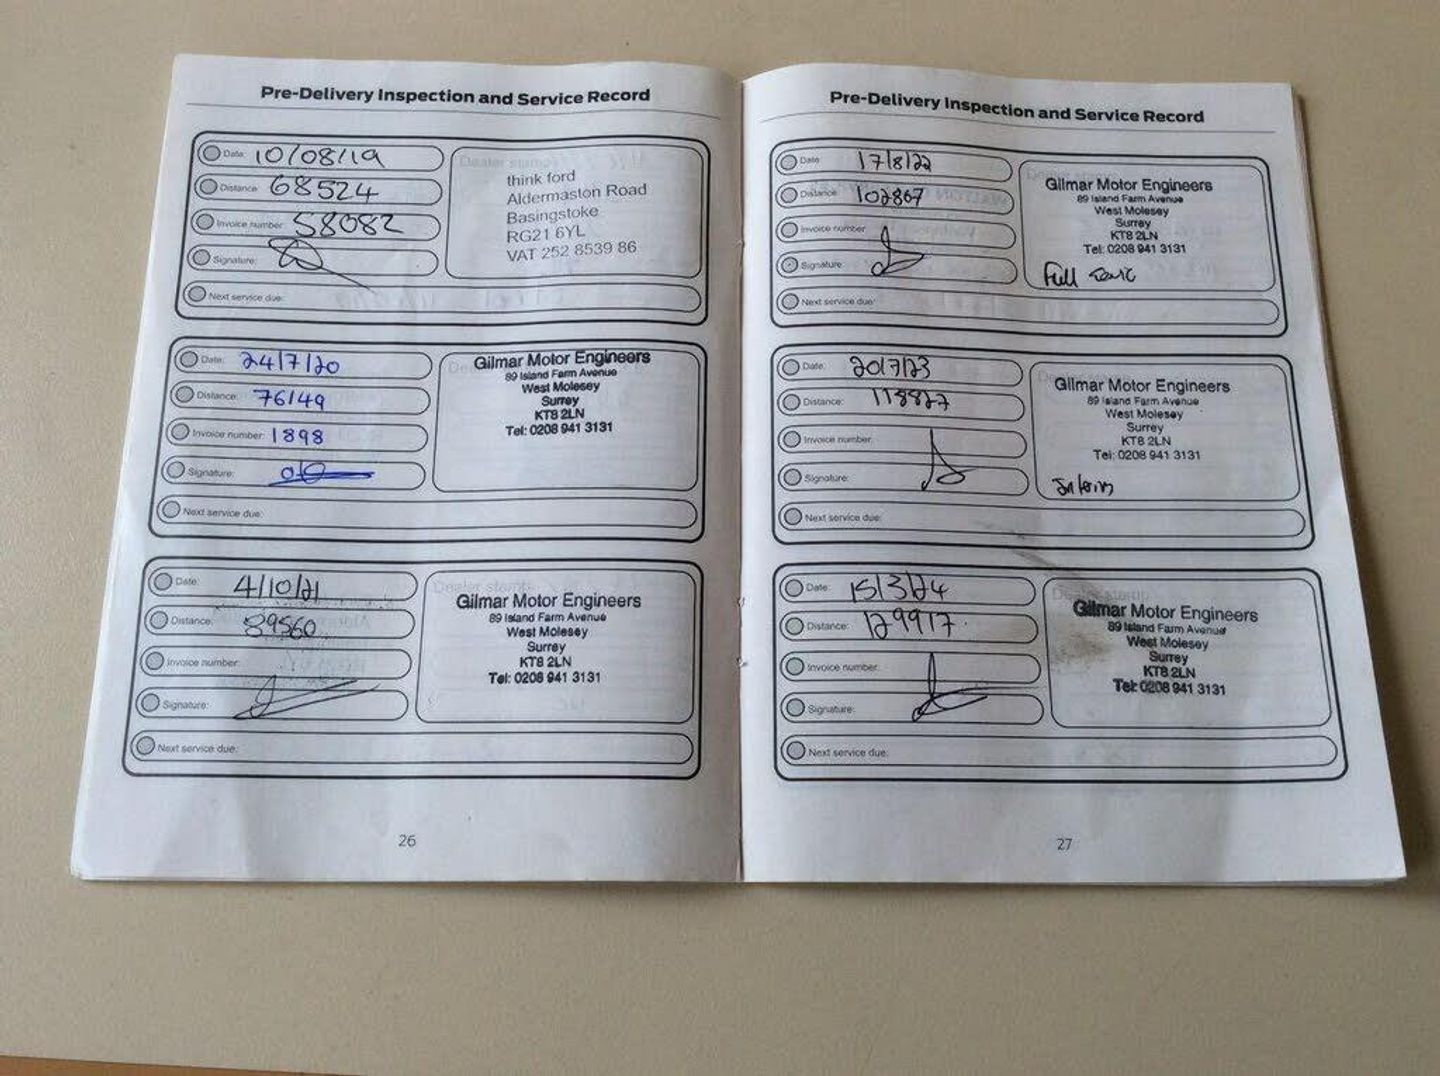 Pre-Delivery Inspection and Service Record
Date: 10/08/19
Distance: 68524
Invoice number: 58082
Signature:
Next service due:
Dealer stamp
think ford
Aldermaston Road
Basingstoke
RG21 6YL
VAT 252 8539 86
Date: 24/7/20
Distance: 76149
Invoice number: 1898
Signature:
Next service due:
Gilmar Motor Engineers
89 Island Farm Avenue
West Molesey
Surrey
KT8 2LN
Tel: 0208 941 3131
Date: 4/10/21
Distance: 89560
Invoice number:
Signature:
Next service due:
Dealer stamp
Gilmar Motor Engineers
89 Island Farm Avenue
West Molesey
Surrey
KT8 2LN
Tel: 0208 941 3131
26
Pre-Delivery Inspection and Service Record
Date: 17/8/22
Distance: 102867
Invoice number:
Signature:
Next service due:
Gilmar Motor Engineers
89 Island Farm Avenue
West Molesey
Surrey
KT8 2LN
Tel: 0208 941 3131
Full
Date: 20/7/23
Distance: 118827
Invoice number:
Signature:
Next service due:
Gilmar Motor Engineers
89 Island Farm Avenue
West Molesey
Surrey
KT8 2LN
Tel: 0208 941 3131
Interim
Date: 15/3/24
Distance: 129917
Invoice number:
Signature:
Next service due:
Dealer stamp
Gilmar Motor Engineers
89 Island Farm Avenue
West Molesey
Surrey
KT8 2LN
Tel: 0208 941 3131
27